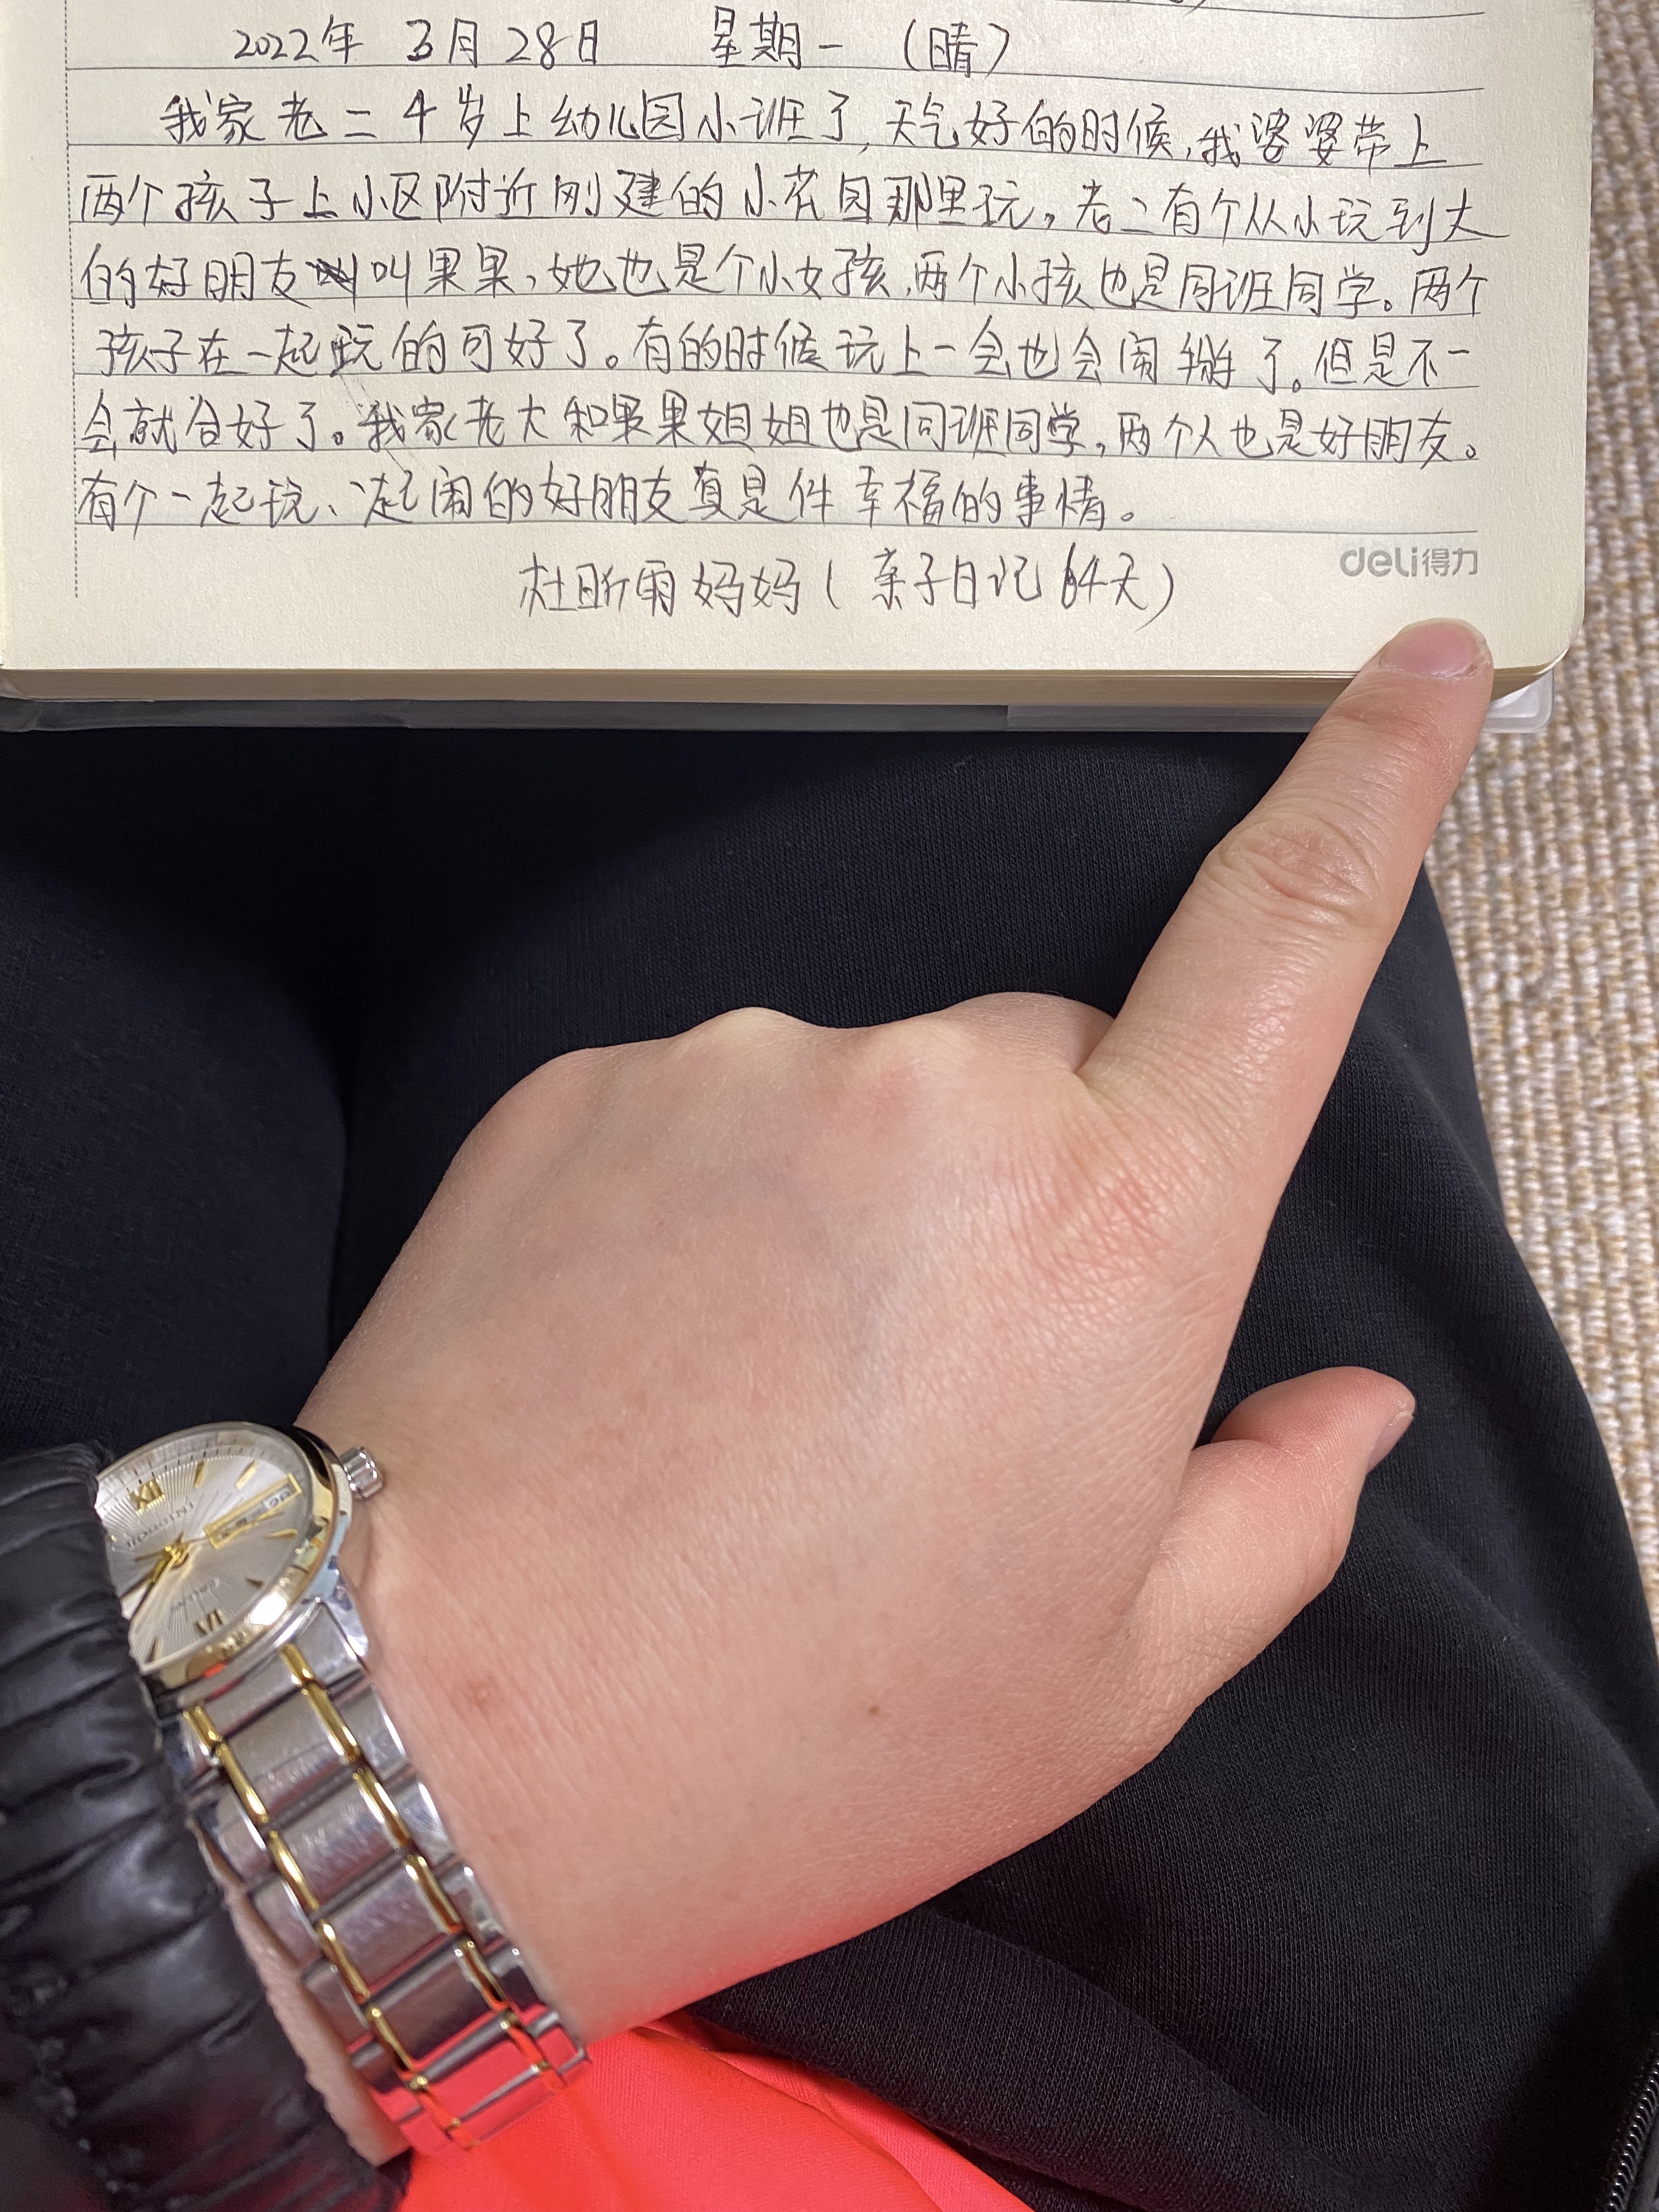 2022年 3月28日 星期一 (晴)
我家老二4岁上幼儿园小班了,天气好的时候,我婆婆带上
两个孩子上小区附近刚建的小花园那里玩,老二有个从小玩到大
的好朋友叫果果,她也是个小女孩,两个小孩也是同班同学。两个
孩子在一起玩的可好了。有的时候玩上一会也会闹掰了。但是不一
会就合好了。我家老大和果果姐姐也是同班同学,两个人也是好朋友。
有个一起玩、一起闹的好朋友真是件幸福的事情。
杜昕雨妈妈(亲子日记64天)
deli得力
XII
VI